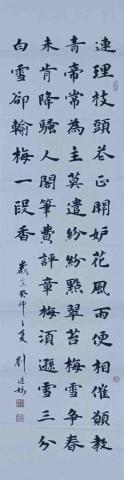 連理枝頭花正開妒花風雨便相催願教
青帝常為主莫遣紛紛點翠苔梅雪爭春
未肯降騷人閣筆費評章梅須遜雪三分
白雪卻輸梅一段香
歲在癸卯之夏 劉